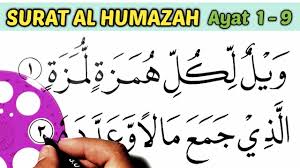 SURAT AL HUMAZAH Ayat 1 - 9
وَيْلٌ لِّكُلِّ هُمَزَةٍ لُّمَزَةٍ ١
الَّذِي جَمَعَ مَالًا وَعَدَّدَهُ ٢